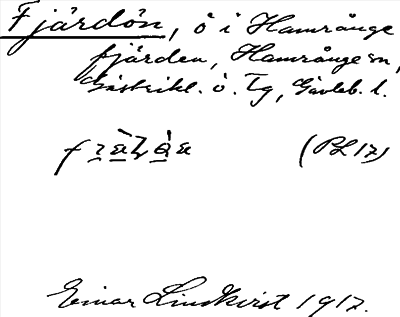 Fjärdön, ö i Hamrånge
fjärden, Hamrånge sn,
Gästrikl. ö. Tg, Gävleb. l.
(BL 17)
Einar Lindkvist 1917.